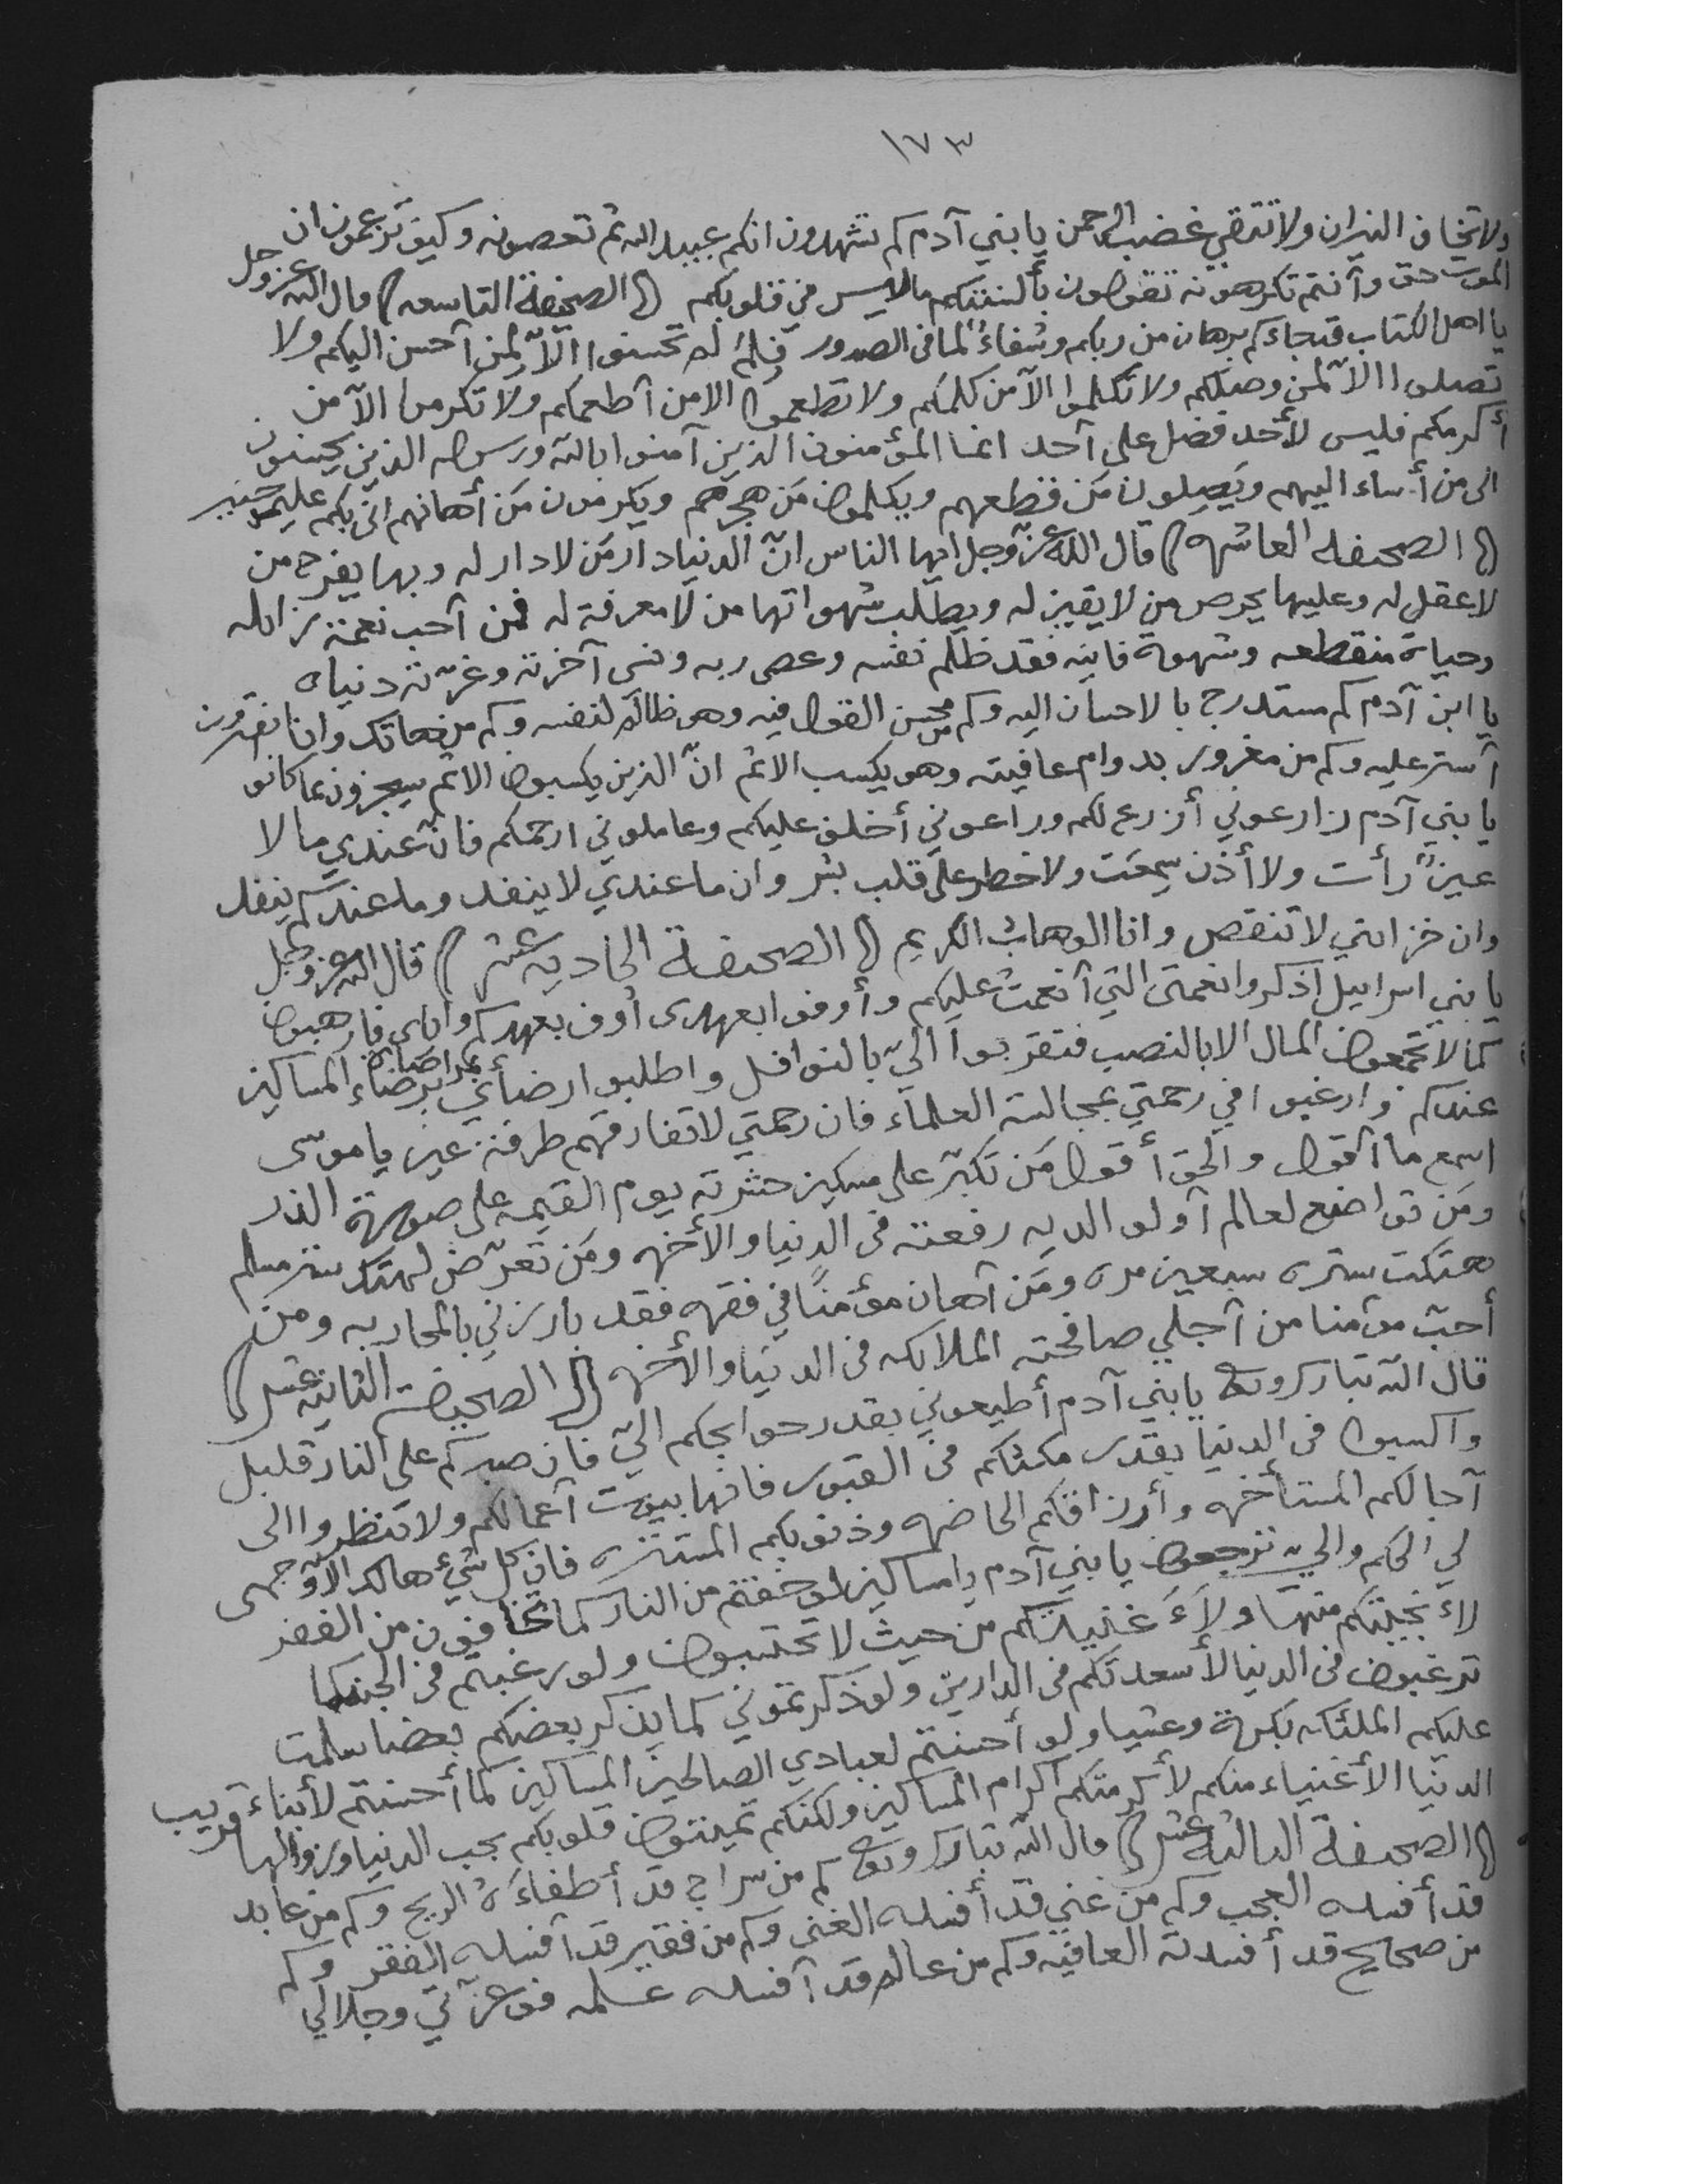 ١٧٣
ولا تخاف النيران ولا تتقي غضب الرحمن يا بني آدم كم تشهدون انكم عبيد الله ثم تعصونه وكيف تزعمون ان
الموت حق وأنتم تكرهونه تقولون بألسنتكم ما ليس في قلوبكم (الصحيفة التاسعه) قال الله عز وجل
يا اهل الكتاب قد جاءكم برهان من ربكم وشفاءٌ لما في الصدور فلِمَ لم تحسنوا الّا لمن أحسن اليكم ولا
تصلوا الّا لمن وصلكم ولا تكلموا الّا من كلمكم ولا تطعموا الا من أطعمكم ولا تكرموا الّا من
أكرمكم فليس لأحد فضل على أحد انما المؤمنون الذين آمنوا بالله ورسوله الذين يحسنون
الى من أساء اليهم ويَصِلون مَن قطعهم ويكلمون مَن هجرهم ويكرمون مَن أهانهم انى بكم عليم خبير
(الصحيفه العاشره) قال الله عزّ وجل ايها الناس انّ الدنيا دار مَن لا دار له وبها يفرح من
لا عقل له وعليها يحرص من لا يقين له ويطلب شهواتها من لا معرفة له فمن أحب نعمة زائله
وحياة منقطعه وشهوة فانيه فقد ظلم نفسه وعصى ربه ونسى آخرته وغرّته دنياه
يا ابن آدم كم مستدرج بالاحسان اليه وكم من محسن القول فيه وهو ظالم لنفسه وكم من
أستر عليه وكم من مغرور بدوام عافيته وهو يكسب الاثم انّ الذين يكسبون الاثم سيجزون بما كانو يقترفون
يا بني آدم زارعوني أزرع لكم وراعوني أخلف عليكم وعاملوني ارحمكم فانّ عندي ما لا
عينٌ رأت ولا أذن سمِعَت ولا خطر على قلب بشر وان ما عندي لا ينفد وما عندكم ينفد
وان خزائني لا تنقص وانا الوهاب الكريم (الصحيفة الحاديه عشر) قال الله عز وجل
يا بني اسرايل اذكروا نعمتى التي أنعمت عليكم وأوفوا بعهدى أوف بعهدكم واياى فارهبون
كما لا تجمعون المال الا بالنصب فتقربوا اليّ بالنوافل واطلبوا رضائي برضاء المساكين
عندكم وارغبوا في رحمتي بمجالسة العلماء فان رحمتي لا تفارقهم طرفة عين يا موسى
اسمع ما أقول والحق أقول مَن تكبّر على مسكين حشرته يوم القيمه على صورة الذر
ومَن تواضع لعالم أو لوالديه رفعته في الدنيا والأخره ومَن تعرّض لهتك ستر مسلم
هتكت ستره سبعين مره ومَن أهان مؤمنًا في فقره فقد بارزني بالمحاربه ومن
أحبّ مؤمنا من أجلي صافحته الملائكه في الدنيا والأخره (الصحيفة الثانيه عشر)
قال الله تبارك وتع يا بني آدم أطيعوني بقدر حوايجكم اليّ فان صبركم على النار قليل
واكسبوا في الدنيا بقدر مكثكم في القبور فانها بيوت أعمالكم ولا تنظروا الى
آجالكم المستأخره وأرزاقكم الحاضره وذنوبكم المستتره فان كل شيء هالك الّا وجهى
لي الحكم والي ترجعون يا بني آدم يا مساكين لو خفتم من النار كما تخافون من الفقر
لأنجيتكم منها ولأغنيتكم من حيث لا تحتسبون ولو رغبتم في الجنة كما
ترغبون في الدنيا لأسعدتكم في الدارين ولو ذكرتموني كما يذكر بعضكم بعضا سلمت
عليكم الملئكه بكرة وعشيا ولو أحسنتم لعبادي الصالحين المساكين كما أحسنتم لأبناء
الدنيا الأغنياء منكم لأكرمتكم اكرام المساكين ولكنكم تميتون قلوبكم بحب الدنيا وزوالها قريب
(الصحيفة الثالثه عشر) قال الله تبارك وتع كم من سراج قد أطفاءَهُ الريح وكم من عابد
قد أفسده العجب وكم من غني قد أفسده الغنى وكم من فقير قد أفسده الفقر وكم
من صحايح قد أفسدته العافيه وكم من عالم قد أفسده علمه فوعزّتي وجلالي